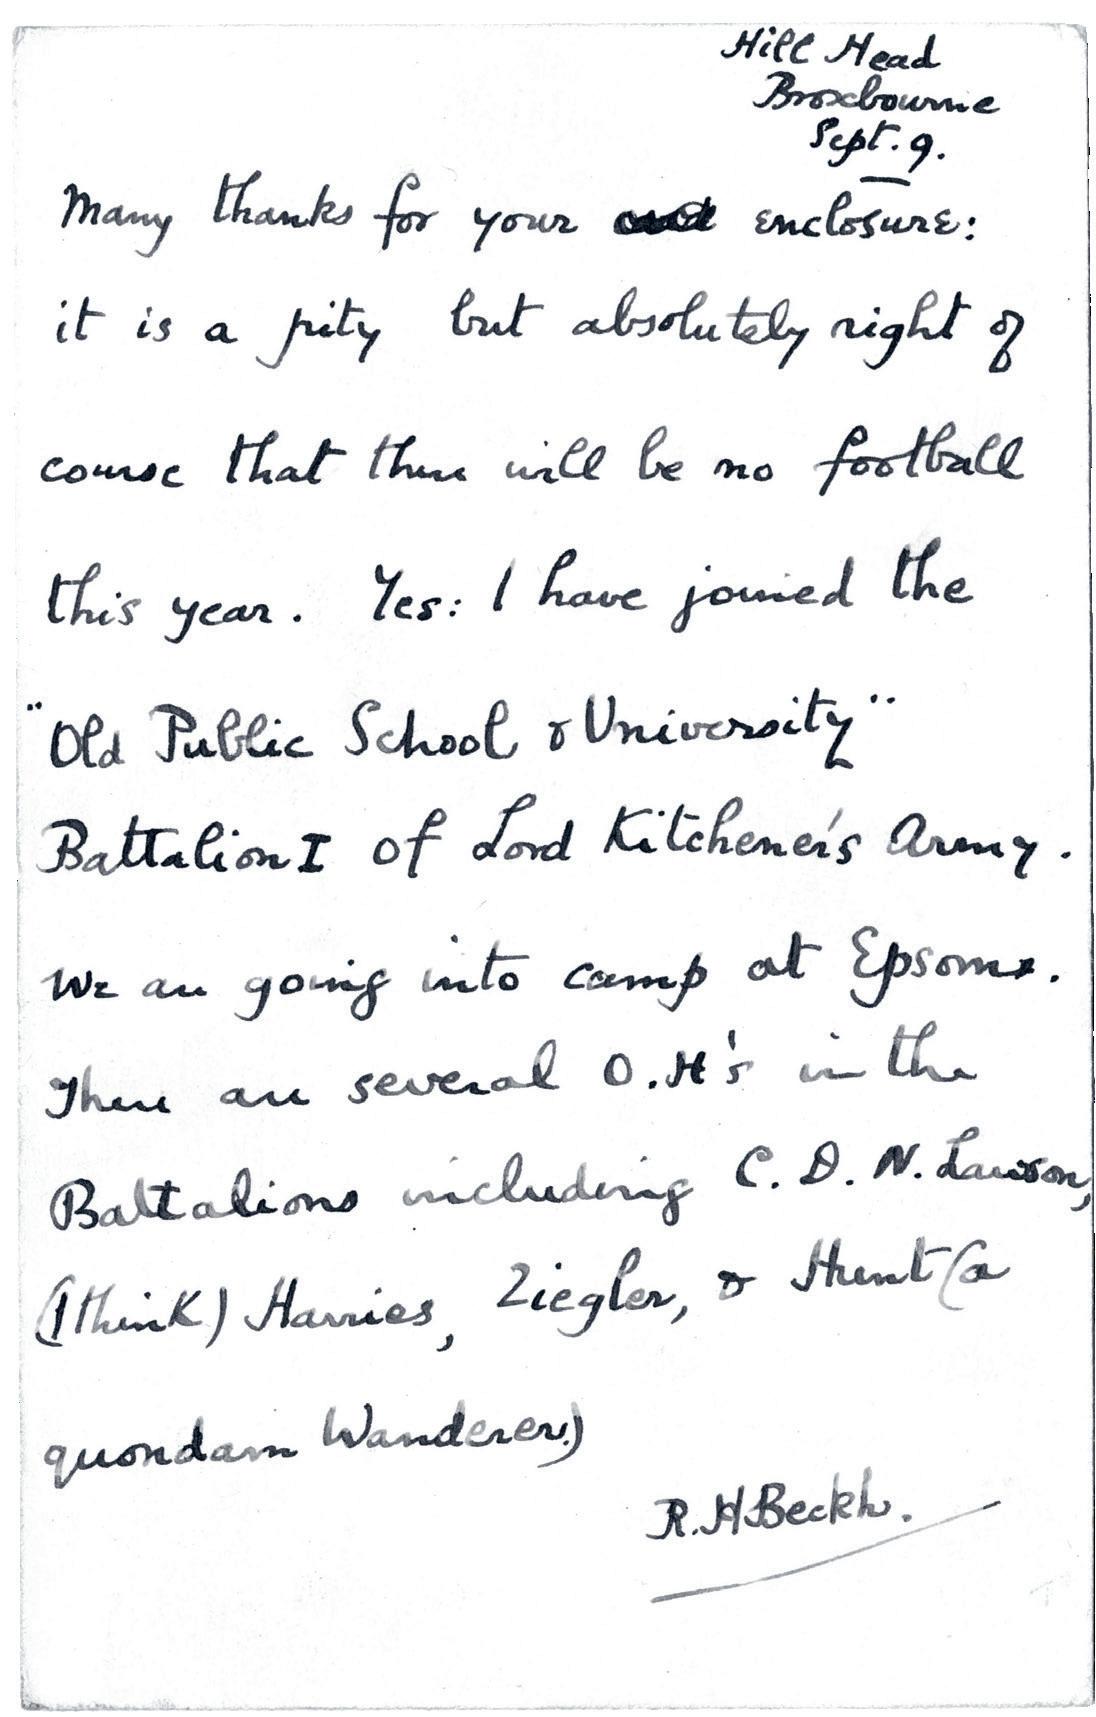 Hill Head
Broxbourne
Sept. 9.
Many thanks for your enclosure:
it is a pity but absolutely right of
course that there will be no football
this year. Yes: I have joined the
"Old Public School & University"
Battalion I of Lord Kitchener's Army.
We are going into camp at Epsom.
There are several O.H's in the
Battalions including C. D. N. Lawson,
(I think) Harries, Ziegler, & Hunt (a
quondam Wanderer.)
R. H Beckh.